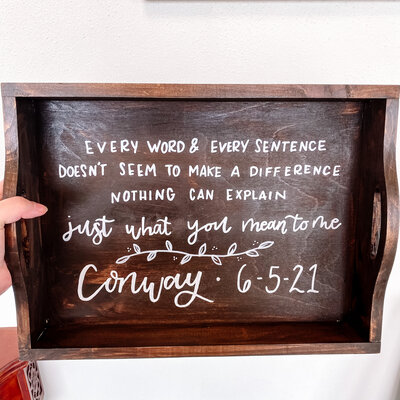 EVERY WORD & EVERY SENTENCE
DOESN'T SEEM TO MAKE A DIFFERENCE
NOTHING CAN EXPLAIN
just what you mean to me
Conway · 6-5-21